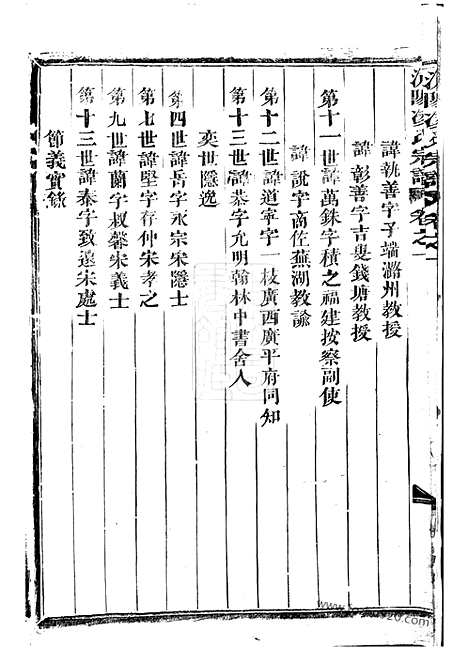 宗譜 卷之一
諱執善字子端潞州教授
諱彰善字吉叟錢塘教授
第十一世諱萬銖字積之福建按察副使
諱說字商佐蕪湖教諭
第十二世諱道寧字一枝廣西廣平府同知
第十三世諱恭字允明翰林中書舍人
奕世隱逸
第四世諱岳字永宗宋隱士
第七世諱堅字存仲宋孝之
第九世諱蘭字叔馨宋義士
第十三世諱泰字致遠宋處士
節義實錄